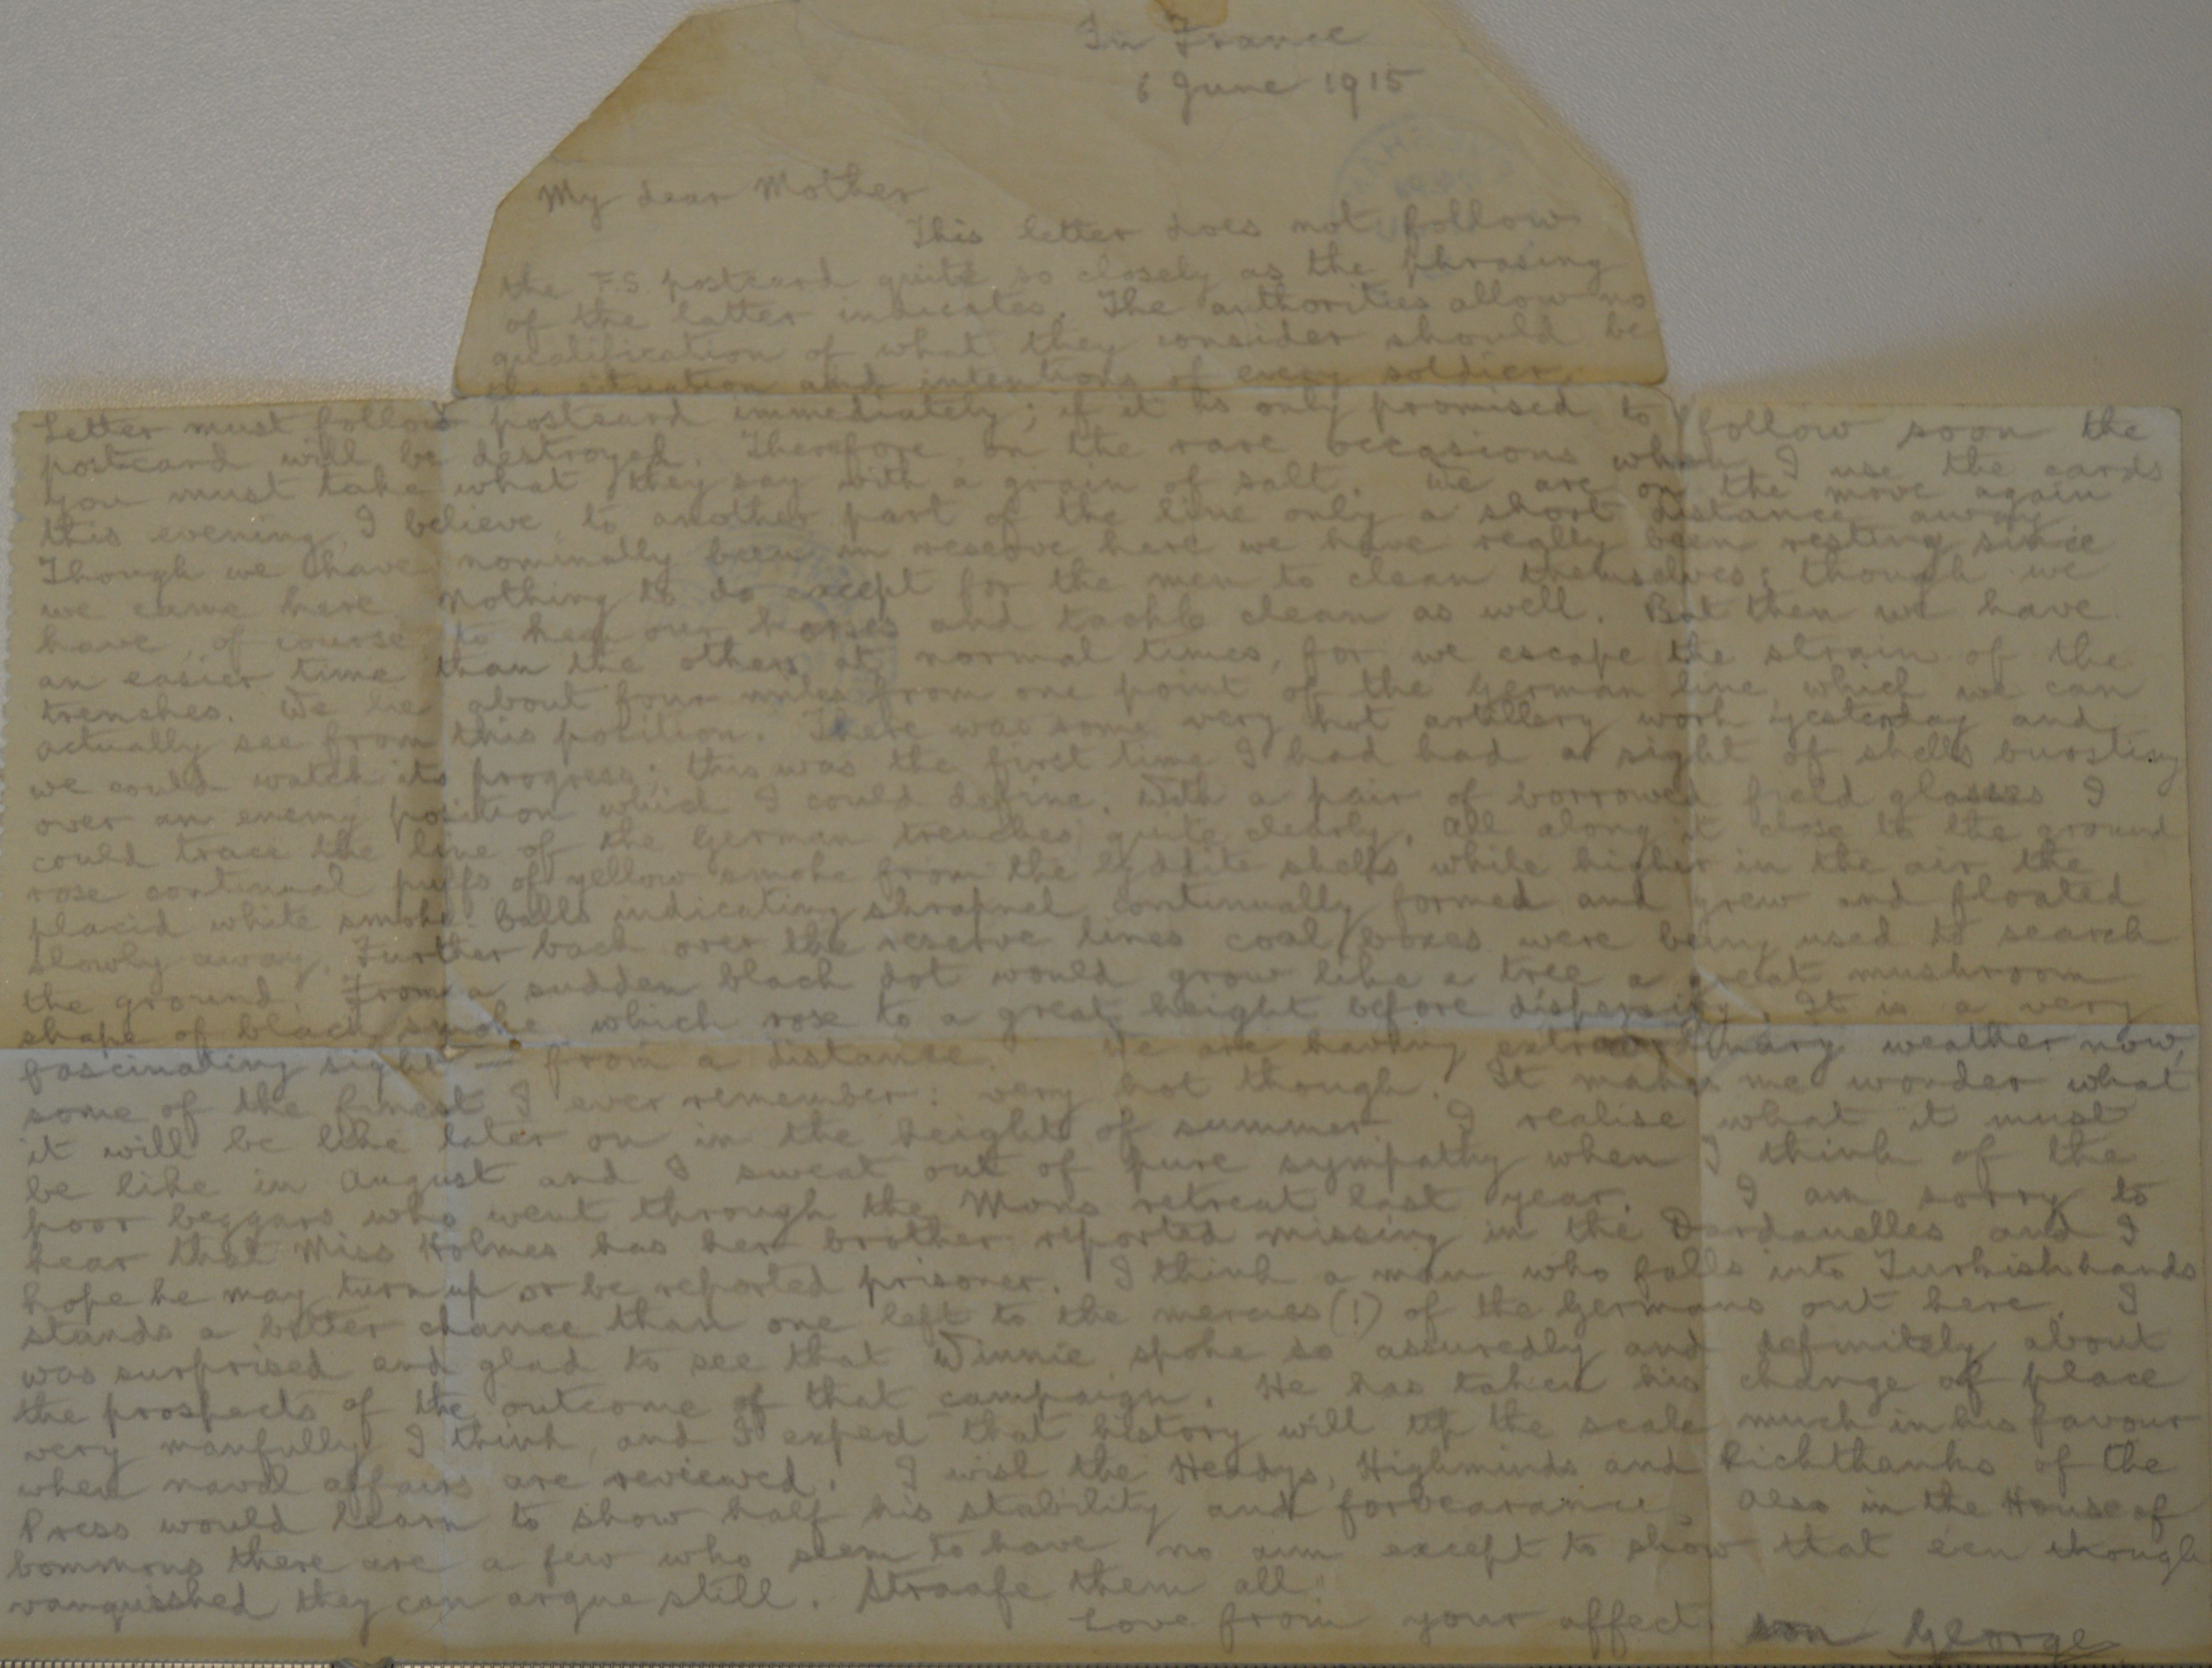 In France
6 June 1915
My dear Mother
This letter does not follow
the F.S. postcard quite so closely as the phrasing
of the latter indicates. The authorities allow no
qualification of what they consider should be
the situation and intentions of every soldier.
Letter must follow postcard immediately; if it is only promised to follow soon the
postcard will be destroyed. Therefore, on the rare occasions when I use the cards
you must take what they say with a grain of salt. We are on the move again
this evening, I believe, to another part of the line only a short distance away.
Though we have nominally been in reserve here we have really been resting since
we came here, nothing to do except for the men to clean themselves; though we
have, of course to keep our horses and tackle clean as well. But then we have
an easier time than the others at normal times, for we escape the strain of the
trenches. We lie about four miles from one point of the German line which we can
actually see from this position. There was some very hot artillery work yesterday and
we could watch its progress; this was the first time I had had a sight of shells bursting
over an enemy position which I could define. With a pair of borrowed field glasses I
could trace the line of the German trenches quite clearly. All along it close to the ground
rose continual puffs of yellow smoke from the lyddite shells while higher in the air the
placid white smoke-balls indicating shrapnel continually formed and grew and floated
slowly away. Further back over the reserve lines coal boxes were being used to search
the ground. From a sudden black dot would grow like a tree a great mushroom
shape of black smoke which rose to a great height before dispersing. It is a very
fascinating sight — from a distance. We are having extraordinary weather now,
some of the finest I ever remember: very hot though. It makes me wonder what
it will be like later on in the height of summer. I realise what it must
be like in August and I sweat out of pure sympathy when I think of the
poor beggars who went through the Mons retreat last year. I am sorry to
hear that Miss Holmes has her brother reported missing in the Dardanelles and I
hope he may turn up or be reported prisoner. I think a man who falls into Turkish hands
stands a better chance than one left to the mercies (!) of the Germans out here. I
was surprised and glad to see that Winnie spoke so assuredly and definitely about
the prospects of the outcome of that campaign. He has taken his change of place
very manfully I think, and I expect that history will tip the scale much in his favour
when naval affairs are reviewed. I wish the Heddys, Highminds and Kickthanks of the
Press would learn to show half his stability and forbearance. Also in the House of
Commons there are a few who seem to have no aim except to show that e'en though
vanquished they can argue still. Straafe them all.
Love from your affect. son George